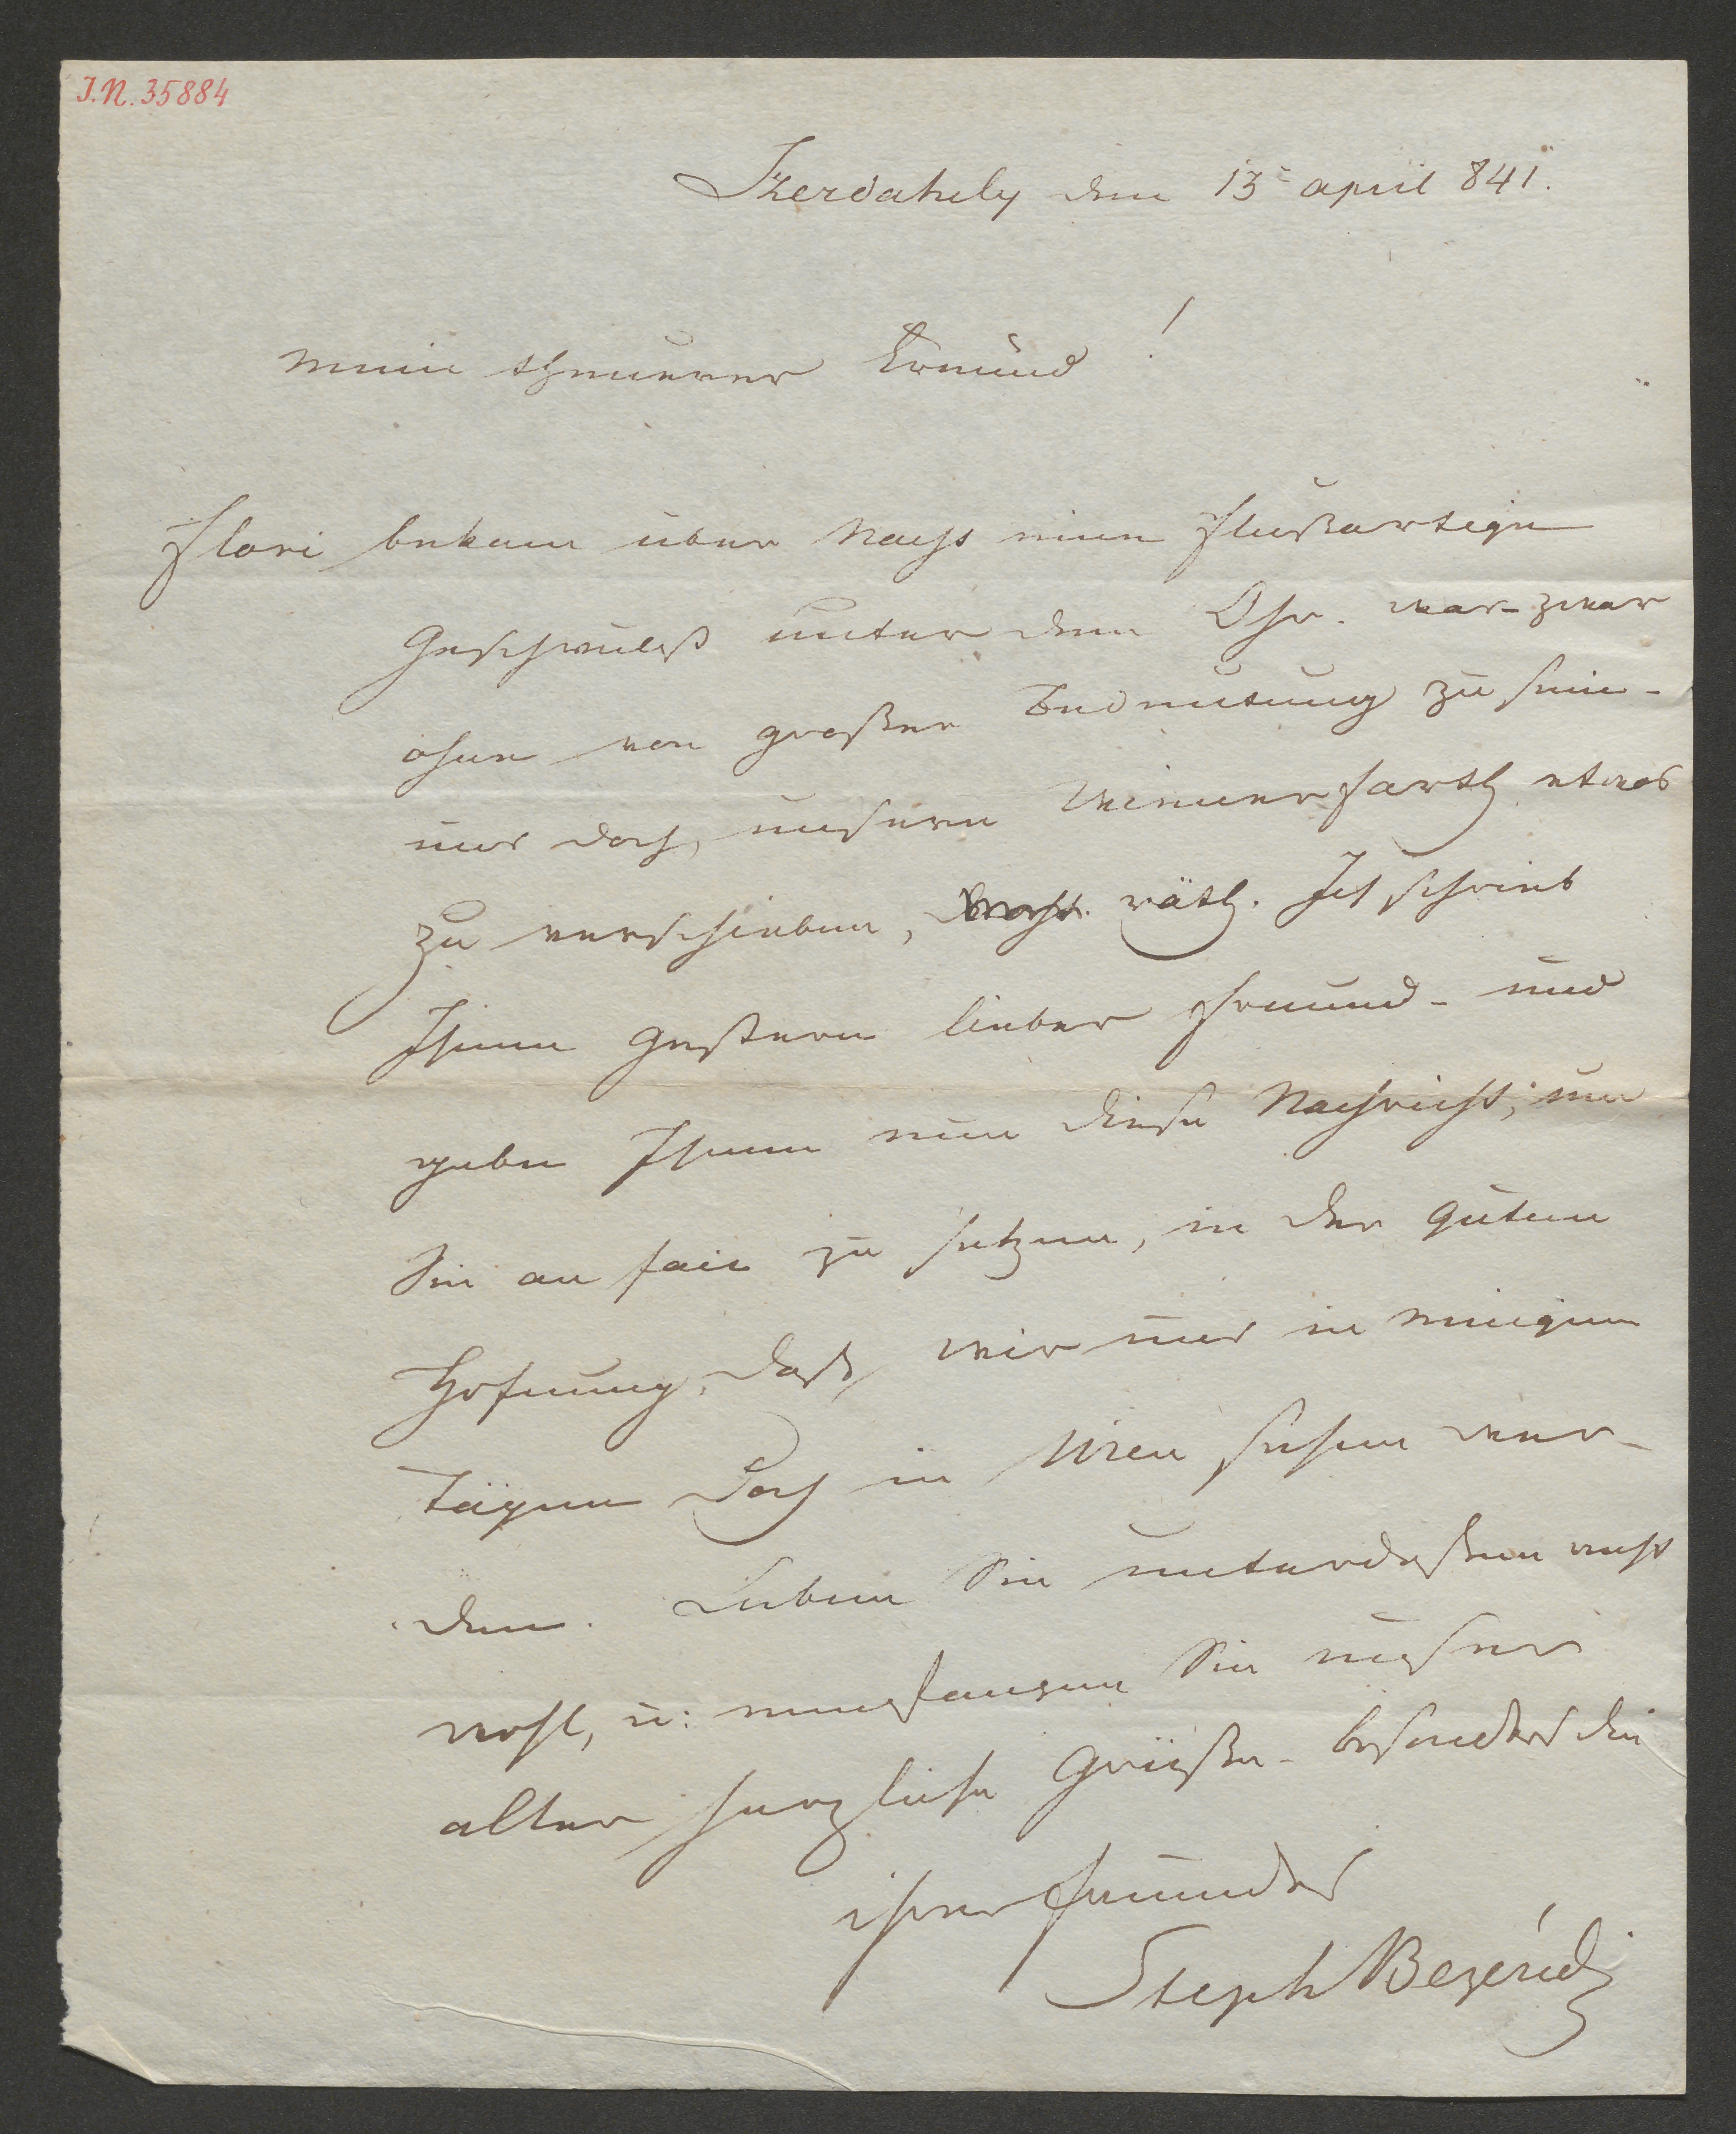 I.N. 35884
Szerdahely den 13ᵗ april 841.
Mein theuerer Freund!
Flori bekam über Nacht eine flußartige
Geschwulst unter dem Ohr. was zwar
ohne von großer Bedeutung zu sein -
uns doch, unsere Wienerfarth etwas
zu verschieben, räth. Ich schrieb
Ihnen gestern lieber Freund - und
gebe Ihnen nun diese Nachricht; um
Sie au fait zu setzen, in der guten
Hofnung, daß wir uns in einigen
Tägen doch in Wien sehen wer-
den. Leben Sie unterdeßen recht
wohl, u: empfangen Sie unser
aller herzliche Grüße - besonders die
ihres Freundes
Steph Bezerédj